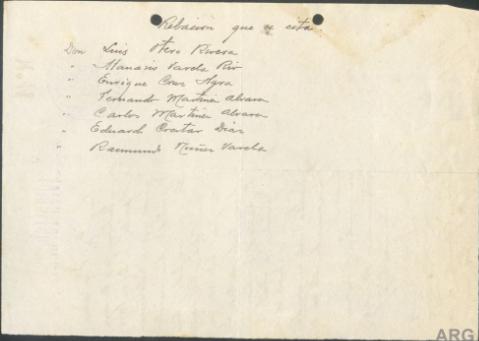 Relacion que se cita
Don Luis Otero Rivera
" Manasis Varela Rio
" Enrique Cruz Agra
" Fernando Martinez Alvarez
" Carlos Martinez Alvarez
" Eduard Díaz
Raimundo Nuñez Varela
ARG